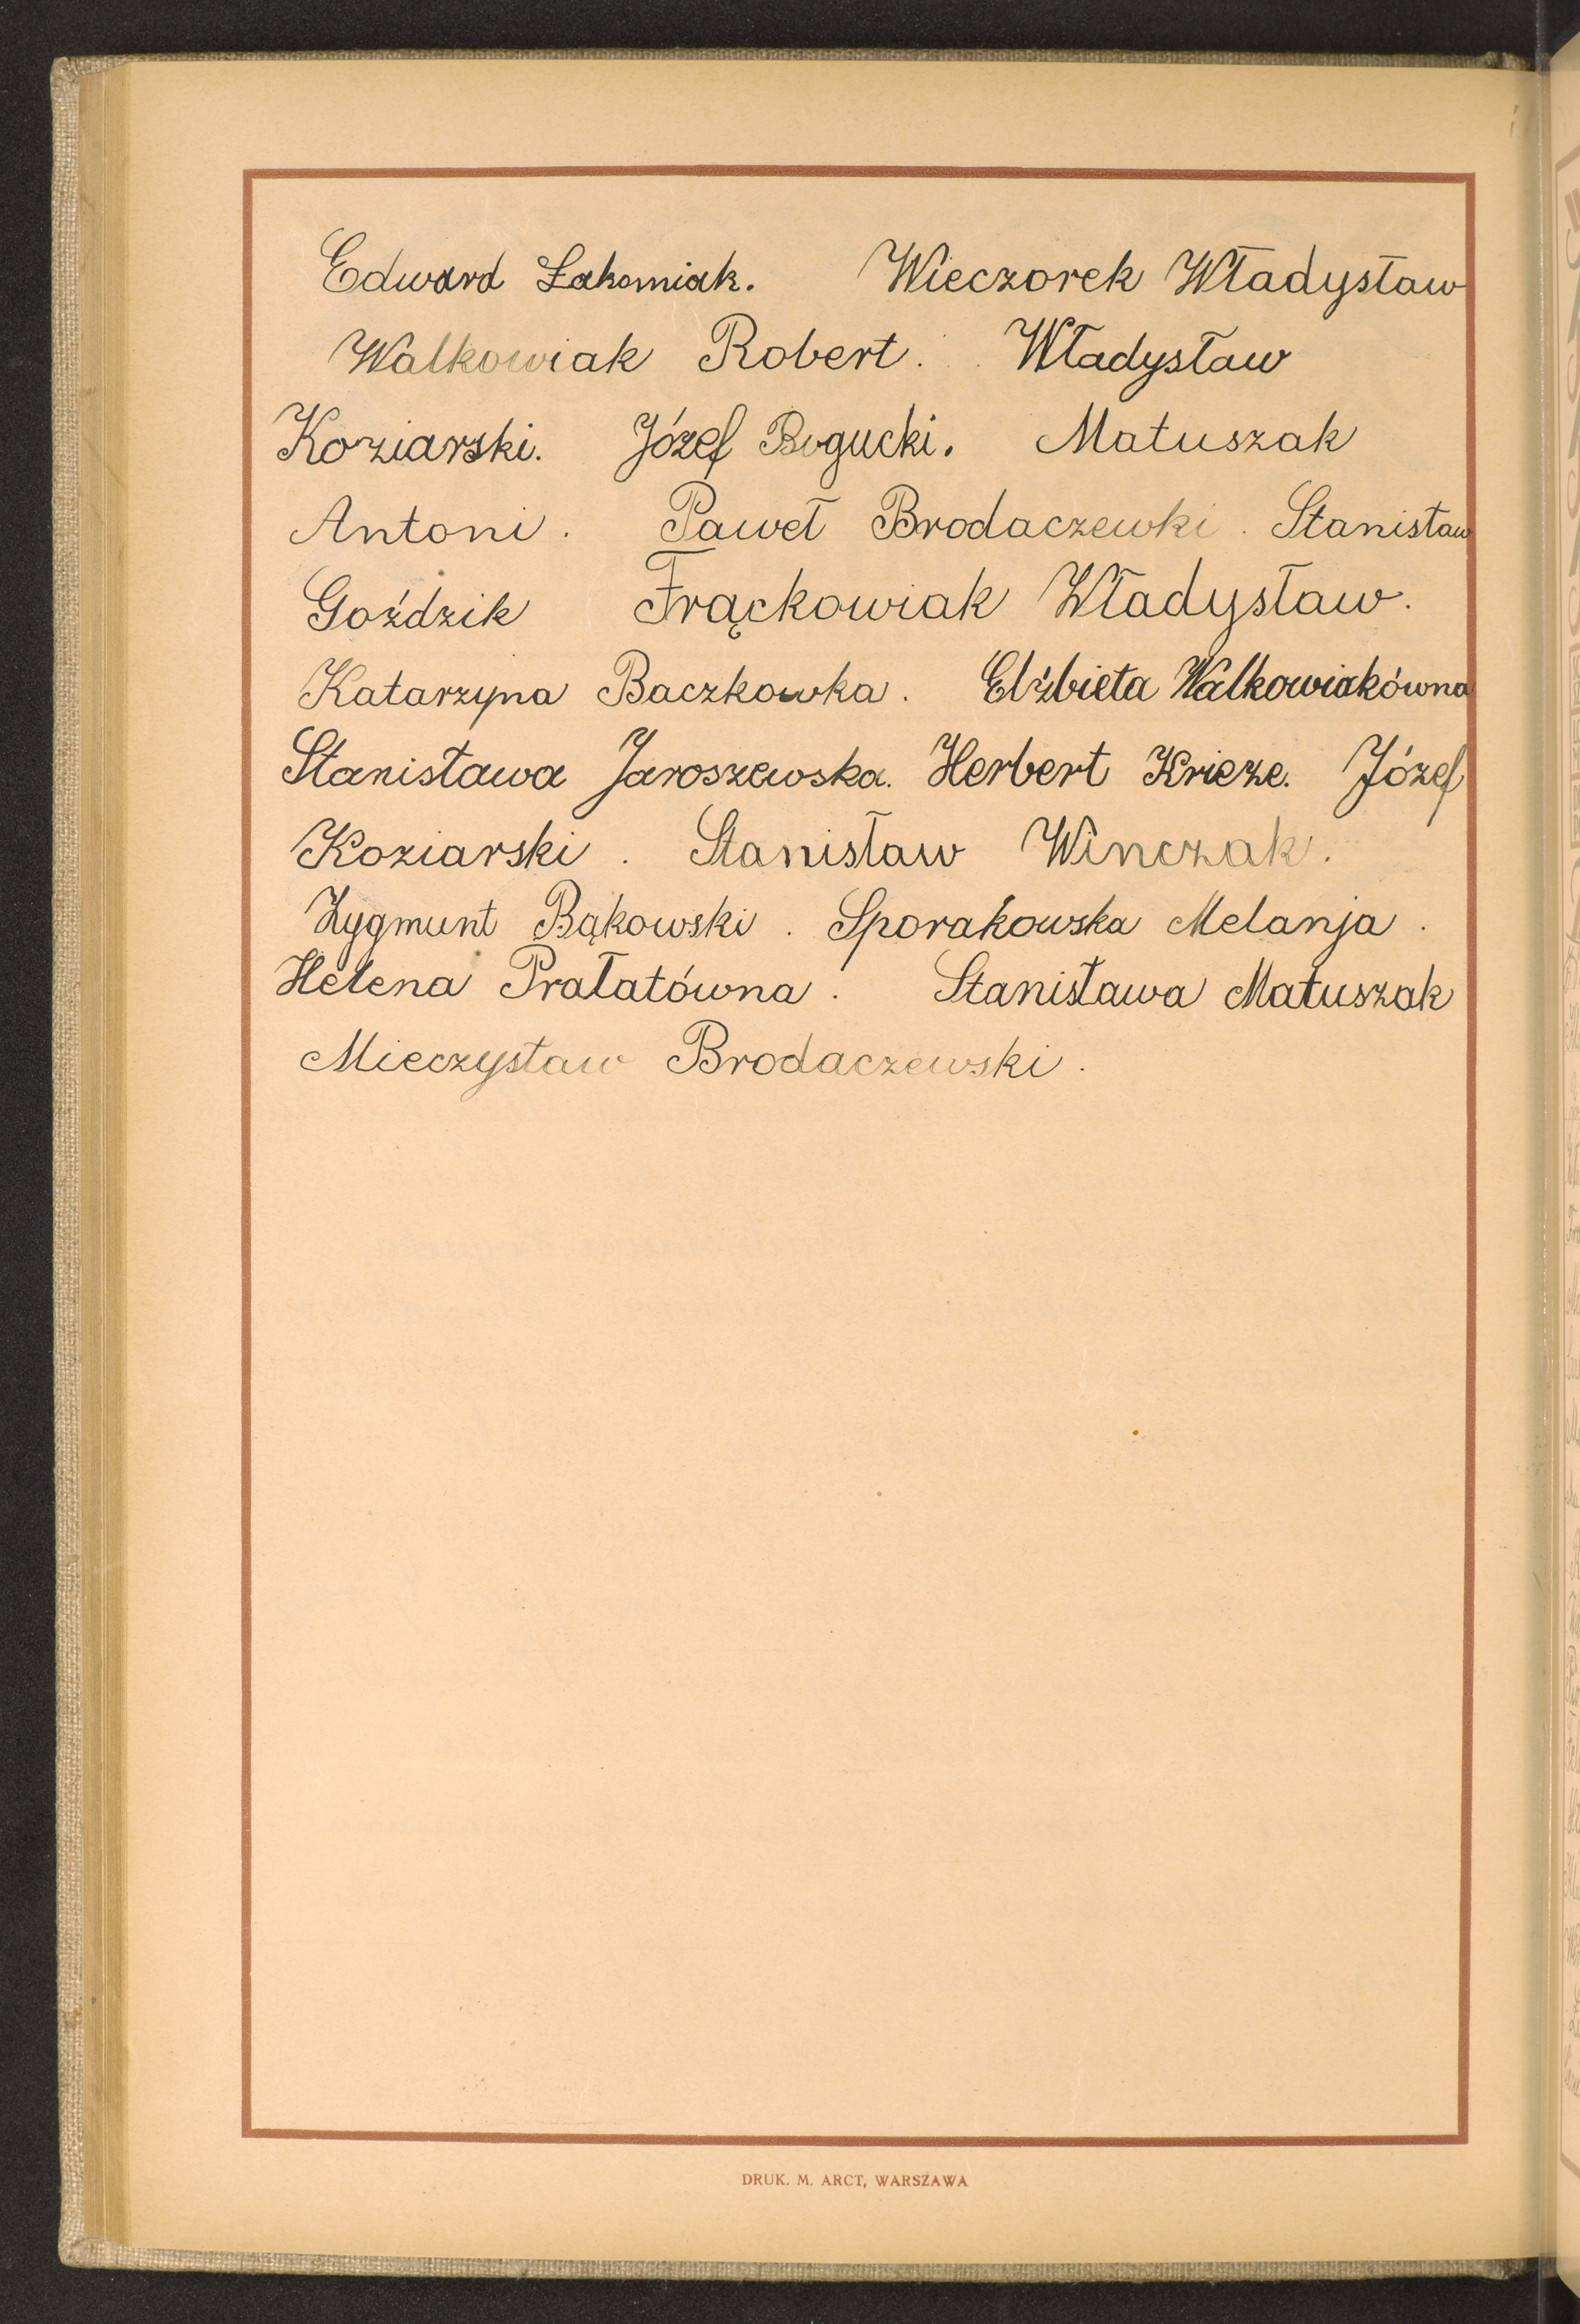 Edward Łakomiak. Wieczorek Władysław
Walkowiak Robert. Władysław
Koziarski. Józef Bogucki. Matuszak
Antoni. Paweł Brodaczewki. Stanisław
Goździk Frąckowiak Władysław.
Katarzyna Baczkowka. Elżbieta Walkowiakówna
Stanisława Jaroszewska. Herbert Krieze. Józef
Koziarski. Stanisław Winczak.
Zygmunt Bąkowski. Sporakowska Melanja.
Helena Prałatówna. Stanisława Matuszak
Mieczysław Brodaczewski.
DRUK. M. ARCT, WARSZAWA